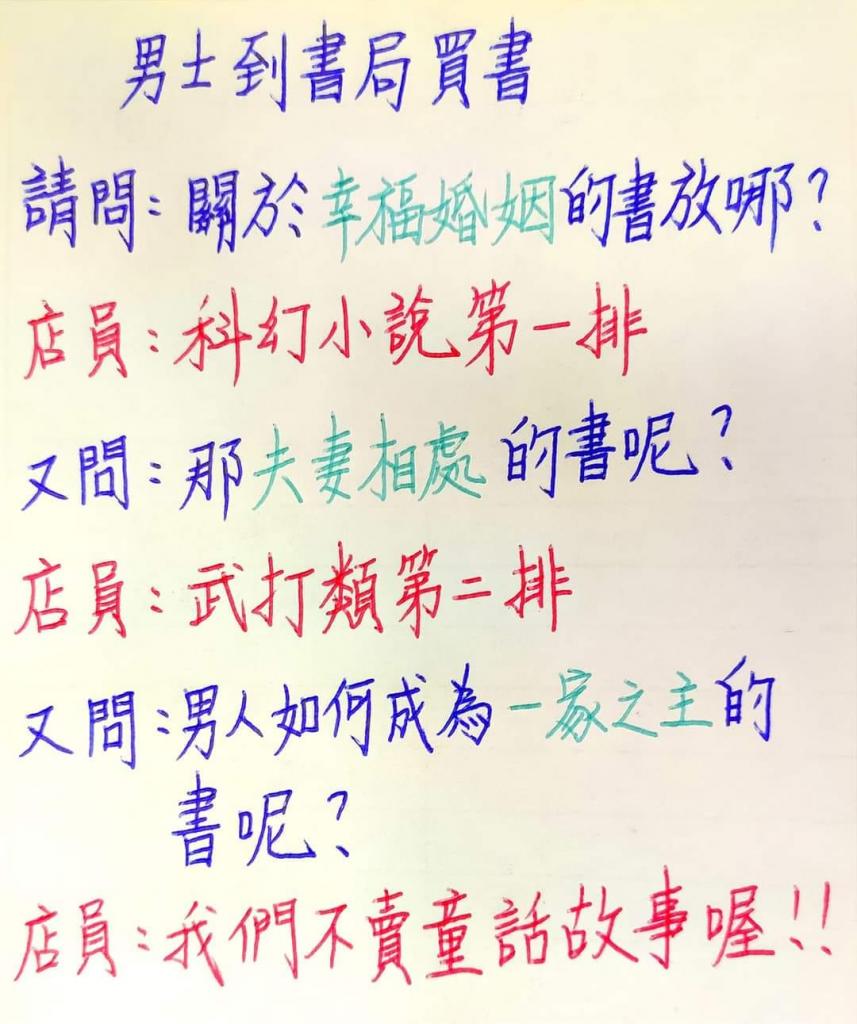 男士到書局買書
請問：關於幸福婚姻的書放哪？
店員：科幻小說第一排
又問：那夫妻相處的書呢？
店員：武打類第二排
又問：男人如何成為一家之主的
書呢？
店員：我們不賣童話故事喔！！